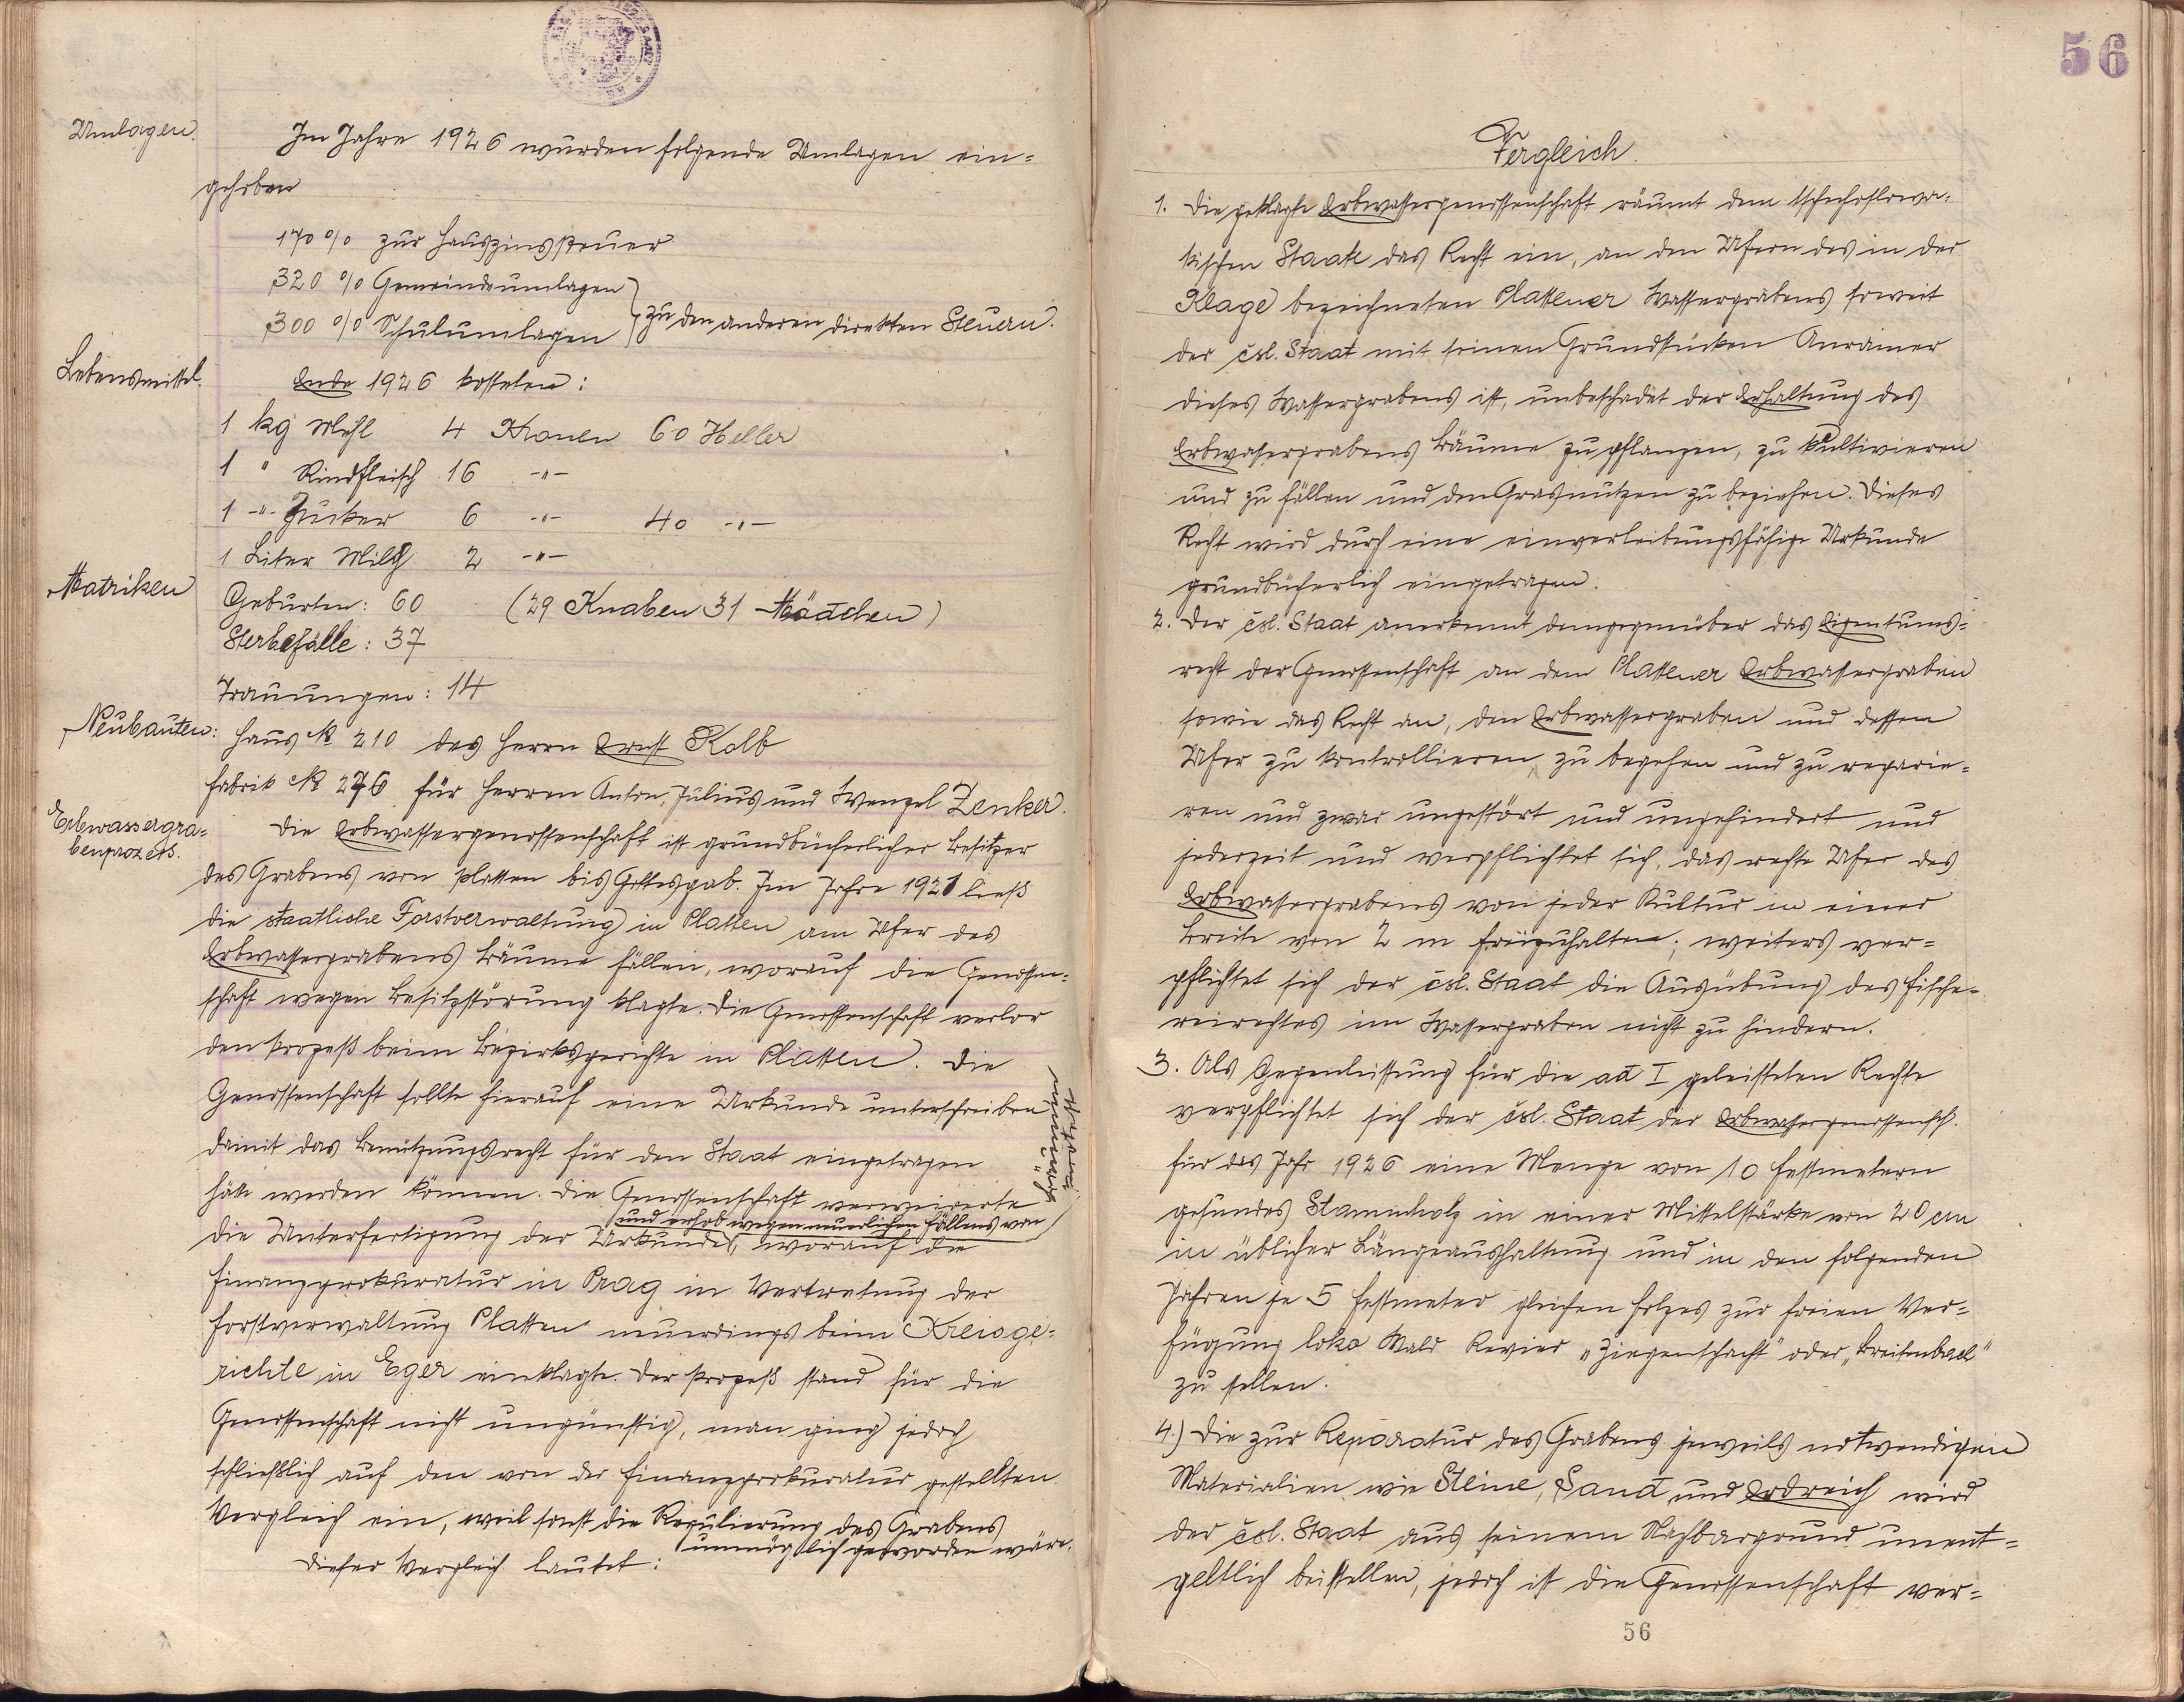 Umlagen.
Im Jahre 1926 wurden folgende Umlagen ein=
gehoben
170 % zur Hauszinssteuer
320 % Gemeindeumlagen
300 % Schulumlagen } zu den anderen direkten Steuern.
Lebensmittel.
Ende 1926 kosteten:
1 kg Mehl 4 Kronen 60 Heller
1 " Rindfleisch 16 -"-
1 -"- Zucker 6 -"- 40 -"-
1 Liter Milch 2 -"-
Matriken
Geburten: 60 (29 Knaben 31 Mädchen)
Sterbefälle: 37
Trauungen: 14
Neubauten:
Haus № 210 des Herrn Ernst Kolb
Fabrik № 276 für Herren Anton, Julius und Wenzel Zenker.
Erbwassergra=
benprozess.
Die Erbwassergenossenschaft ist grundbücherlicher Besitzer
des Grabens von Platten bis Gottesgab. Im Jahre 1921 ließ
die staatliche Forstverwaltung in Platten am Ufer des
Erbwassergrabens Bäume fällen, worauf die Genossen=
schaft wegen Besitzstörung klagte. Die Genossenschaft verlor
den Prozeß beim Bezirksgerichte in Platten. Die
Genossenschaft sollte hierauf eine Urkunde unterschreiben
damit das Benützungsrecht für den Staat eingetragen
hätte werden können. Die Genossenschaft verweigerte
und erhob wegen neuerlichen Fällens von
die Unterfertigung der Urkunde, worauf die
Finanzprokuratur in Prag in Vertretung der
Forstverwaltung Platten neuerdings beim Kreisge=
richte in Eger einklagte. Der Prozeß stand für die
Genossenschaft nicht ungünstig, man ging jedoch
schließlich auf den von der Finanzprokuratur gestellten
Vergleich ein, weil sonst die Regulierung des Grabens
unmöglich geworden wäre.
Dieser Vergleich lautet:
56
Vergleich.
1. Die geklagte Erbwassergenossenschaft räumt dem tschechoslowa=
kischen Staate das Recht ein, an den Ufern des in der
Klage bezeichneten Plattener Wassergrabens soweit
der čsl. Staat mit seinen Grundstücken Anrainer
dieses Wassergrabens ist, unbeschadet der Erhaltung des
Erbwassergrabens Bäume zu pflanzen, zu kultivieren
und zu fällen und den Grasnutzen zu beziehen. Dieses
Recht wird durch eine einverleibungsfähige Urkunde
grundbücherlich eingetragen.
2. Der čsl. Staat anerkennt demgegenüber das Eigentums=
recht der Genossenschaft an dem Plattener Erbwassergraben
sowie das Recht an, den Erbwassergraben und dessen
Ufer zu kontrollieren, zu begehen und zu reparie=
ren und zwar ungestört und ungehindert und
jederzeit und verpflichtet sich, das rechte Ufer des
Erbwassergrabens von jeder Kultur in einer
Breite von 2 m freizuhalten; weiters ver=
pflichtet sich der čsl. Staat die Ausübung des Fische=
reirechtes im Wassergraben nicht zu hindern.
3. Als Gegenleistung für die ad I geleisteten Rechte
verpflichtet sich der čsl. Staat der Erbwassergenossensch.
für das Jahr 1926 eine Menge von 10 Festmetern
gesundes Stammholz in einer Mittelstärke von 20 cm
in üblicher Längeaushaltung und in den folgenden
Jahren je 5 Festmeter gleichen Holzes zur freien Ver=
fügung loko Wald Revier „Ziegenschacht" oder „Breitenbach"
zu stellen.
4.) Die zur Reparatur des Grabens jeweils notwendigen
Materialien wie Steine, Sand und Erdreich wird
der čsl. Staat aus seinem Nachbargrund unent=
geltlich beistellen, jedoch ist die Genossenschaft ver=
56